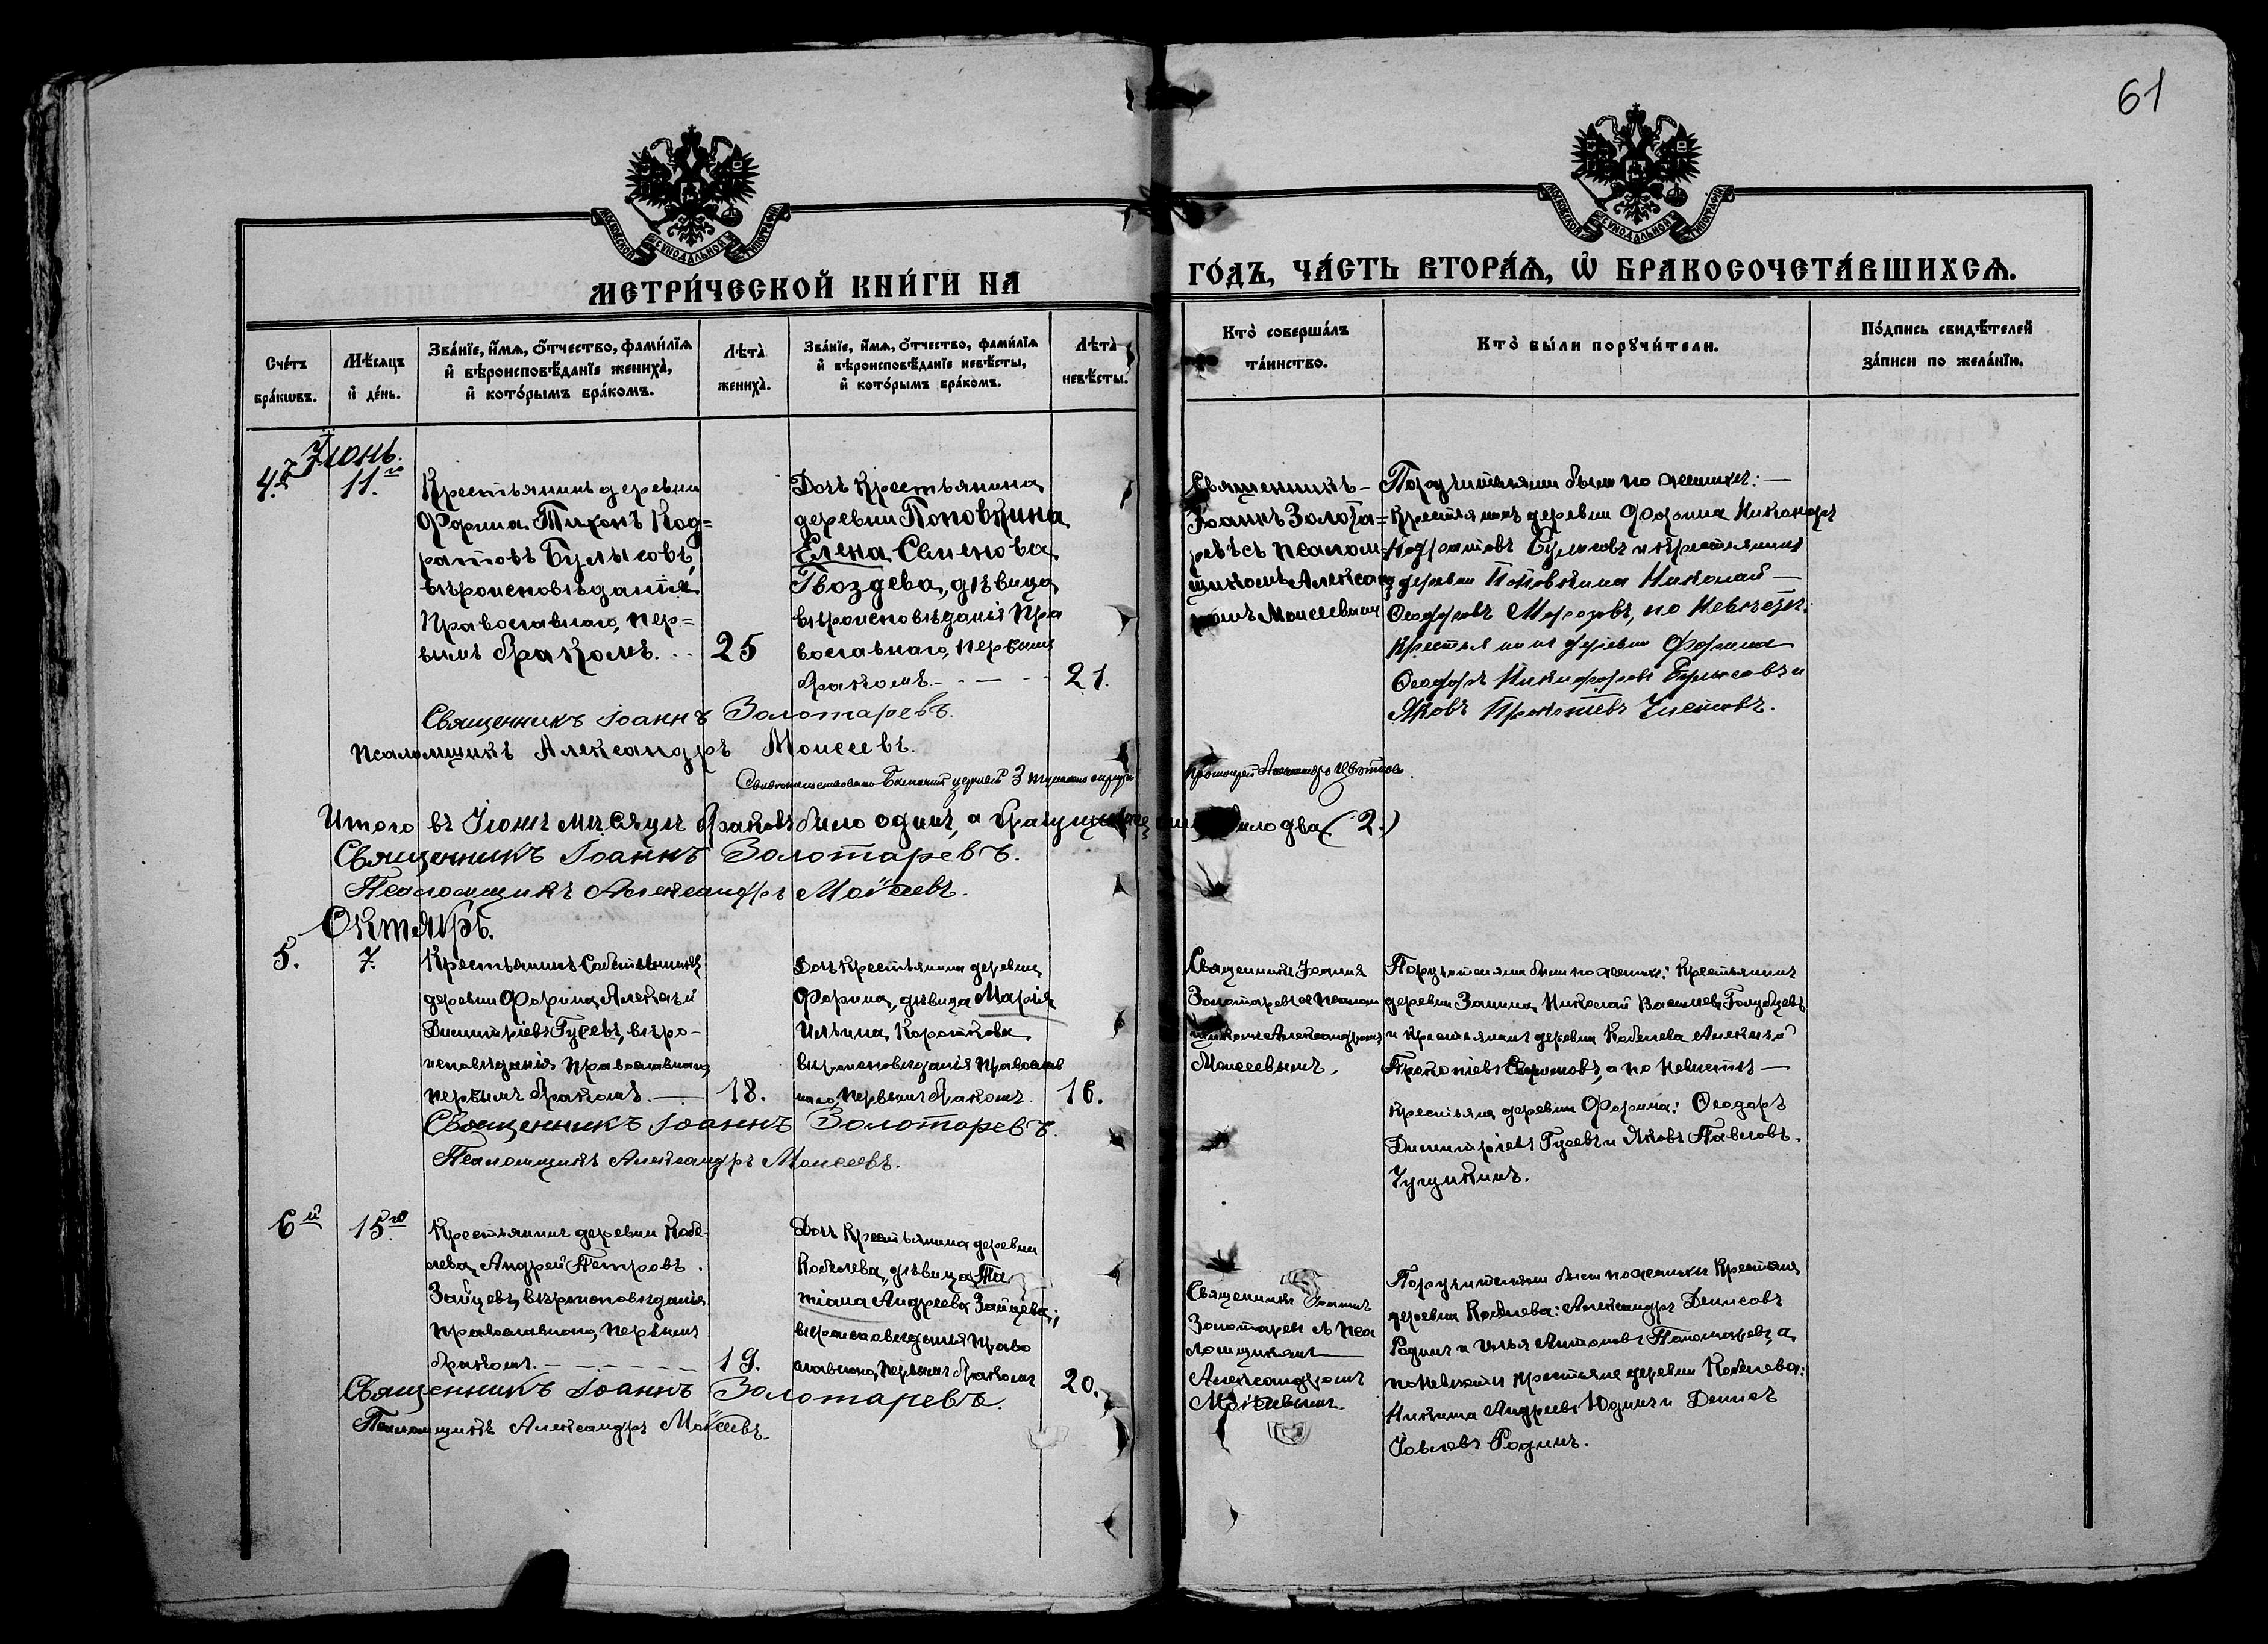 61
МОСКОВСКОЙ СѴНОДАЛЬНОЙ ТИПОГРАФІИ
МОСКОВСКОЙ СѴНОДАЛЬНОЙ ТИПОГРАФІИ
МЕТРИ́ЧЕСКОЙ КНИ́ГИ НА
ГО́ДЪ, ЧА́СТЬ ВТОРА́Ѧ, Ѡ҆ БРАКОСОЧЕТА́ВШИХСѦ.
Сче́тъ
бра́кѡвъ.
Мѣ́сѧцъ
и҆ де́нь.
Зва́нїе, и҆́мѧ, ѻ҆́тчество, фами́лїѧ
и҆ вѣроисповѣ́данїе жениха̀,
и҆ кото́рымъ бра́комъ.
Лѣта̀
жениха̀.
Зва́нїе, и҆́мѧ, ѻ҆́тчество, фами́лїѧ
и҆ вѣроисповѣ́данїе невѣ́сты,
и҆ кото́рымъ бра́комъ.
Лѣта̀
невѣ́сты.
Кто̀ соверша́лъ
та́инство.
Кто̀ бы́ли порꙋчи́тели.
По́дпись свидѣ́телей
за́писи по жела́нїю.
Іюнь.
4.й
11.го
Крестьянинъ деревни
Форина Тихонъ Код=
ратовъ Булысовъ,
вѣроисповѣданія
Православнаго, пер=
вымъ бракомъ. . .
25
Дочь Крестьянина
деревни Поповкина
Елена Семенова
Гвоздева, дѣвица,
вѣроисповѣданія Пра
вославнаго, первымъ
бракомъ. - - - -
21.
Священникъ –
Іоаннъ Золота=
ревъ съ псалом
щикомъ Александ
ромъ Моисеевым
Поручителями были по женихѣ: —
Крестьянинъ деревни Форина Никаноръ
Кодратовъ Булысовъ и крестьянинъ
деревни Поповкина Николай —
Ѳеодоровъ Морозовъ, по Невѣстѣ:
Крестьянинъ деревни Форина
Ѳеодоръ Никифоровъ Булысовъ и
Яковъ Прокопіевъ
Священникъ Іоаннъ Золотаревъ.
Псаломщикъ Александръ Моисеевъ.
Протоіерей Александръ Цвѣтковъ.
Итого въ Іюнѣ мѣсяцѣ браковъ было одинъ, а
было два (2.)
Священникъ Іоаннъ Золотаревъ.
Псаломщикъ Александръ Моисеевъ.
Октябрь.
5.
7.
Крестьянинъ Собственникъ
деревни Форина, Алексѣй
Димитріевъ Гусевъ, вѣро–
исповѣданія Православнаго,
первымъ бракомъ. —
18.
Дочь Крестьянина деревни
Форина, дѣвица Марія
Ильина Короткова
вѣроисповѣданія Православ
наго, первымъ бракомъ.
16.
Священникъ Іоаннъ
Золотаревъ съ псалом
щикомъ Александромъ
Моисеевымъ.
Поручителями были по женихѣ: Крестьянинъ
деревни Занина, Николай Васильевъ Голубцевъ
и крестьянинъ деревни Кобелева Алексѣй
Прокопіевъ, а по Невѣстѣ —
Крестьяне деревни Форина: Ѳеодоръ
Димитріевъ Гусевъ и Яковъ Павловъ
Чугункинъ.
Священникъ Іоаннъ Золотаревъ.
Псаломщикъ Александръ Моисеевъ.
6й
15го
Крестьянинъ деревни Кобе-
лева, Андрей Петровъ
Зайцевъ, вѣроисповѣданія
православнаго, первымъ
бракомъ. - - - - -
19.
Дочь Крестьянина деревни
Кобелева, дѣвица Та
тіана Андреева Зайцева;
вѣроисповѣданія право
славнаго, первымъ бракомъ
20.
Священникъ Іоаннъ
Золотаревъ съ пса
ломщикомъ —
Александромъ
Моисеевымъ.
Поручителями были по женихѣ Крестьяне
деревни Кобелева: Александръ Денисовъ
Родинъ и Илья Антоновъ Пономаревъ, а
по Невѣстѣ крестьяне деревни Кобелева:
Никита Андреевъ Юдинъ и Денисъ
Іовлевъ Родинъ.
Священникъ Іоаннъ Золотаревъ.
Псаломщикъ Александръ Моисеевъ.